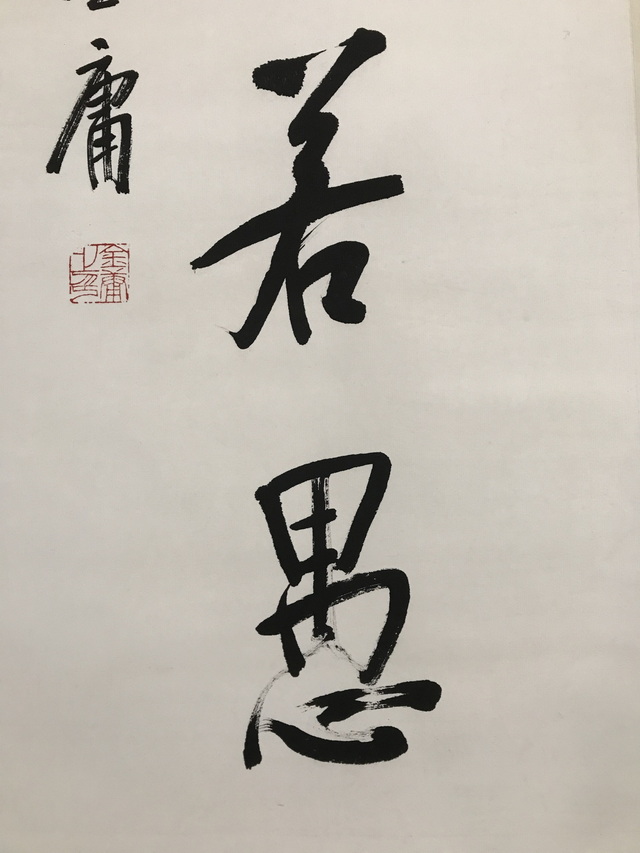 若愚
庸
金庸之印